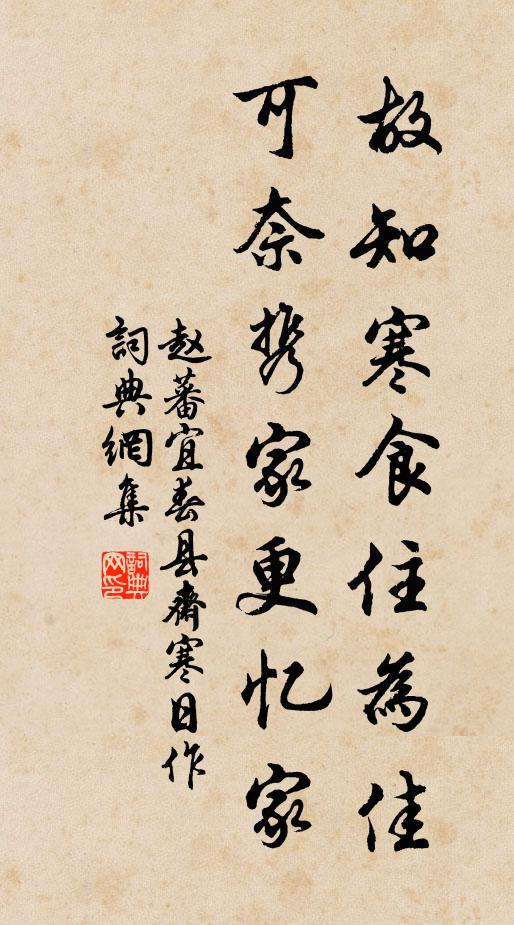 故知寒食住為佳
可奈携家更忆家
赵蕃宜春县斋寒日作
詞典網集
詞典網印